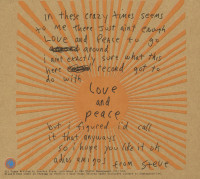 in these crazy times seems
to me there just aint enough
Love and Peace to go
around
im not exactly sure what this
here record got to
do with
Love
and
peace
but i figured i'd call
it that anyways
so i hope you like it oh
adios amigos
from Steve